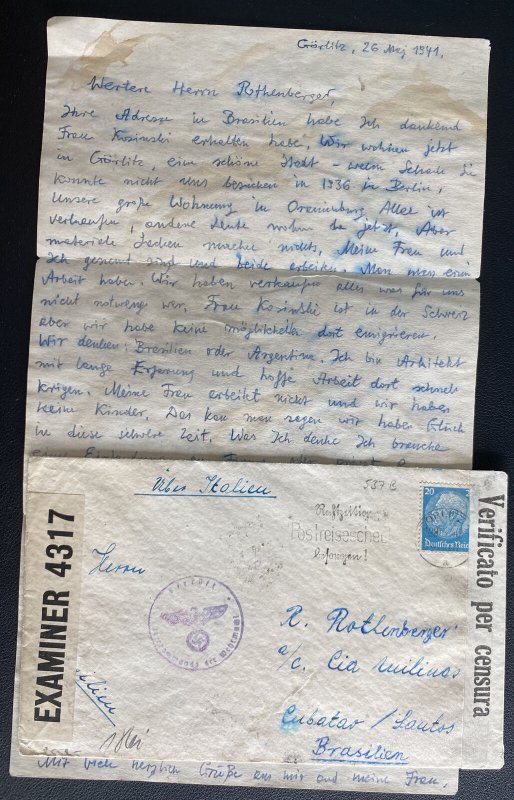 Görlitz, 26 Maj 1941.
Wertere Herrn Rothenberger,
Ihre Adresse in Brasilien habe Ich dankend
Frau Kosinski erhalten habe. Wir wohnen jetzt
in Görlitz, eine schöne Stadt - Schade Sie
konnte nicht uns besuchen in 1936 in Berlin.
Unsere große Wohnung in Oranienburg Allee ist
verkaufen, andere Leute wohn da jetzt. Aber
materiele Sachen machen nichts. Meine Frau und
Ich gesund sind und beide arbeiten. Man muss ein
Arbeit haben. Wir haben verkaufen alles was für uns
nicht notwendig war. Frau Kosinski ist in der Schweiz
aber wir habe keine möglichkeiten dort emigrieren.
Wir denken: Brasilien oder Argentina. Ich bin Arhitekt
mit lange Erfarung und hoffe Arbeit dort schnell
krigen. Meine Frau arbeitet nicht und wir haben
keine Kinder. Das kan man sagen wir haben Glück
in diese schwere Zeit. Was Ich denke Ich brauche
Über Italien
537 B
Rechtzeitig
Postreisescheck
besorgen!
20
Deutsches Reich
EXAMINER 4317
Verificato per censura
Herrn
R. Rothenberger
a/c. Cia
Cubatao / Santos
Brasilien
Mit viele herzlich Grüße aus mir und meine Frau,